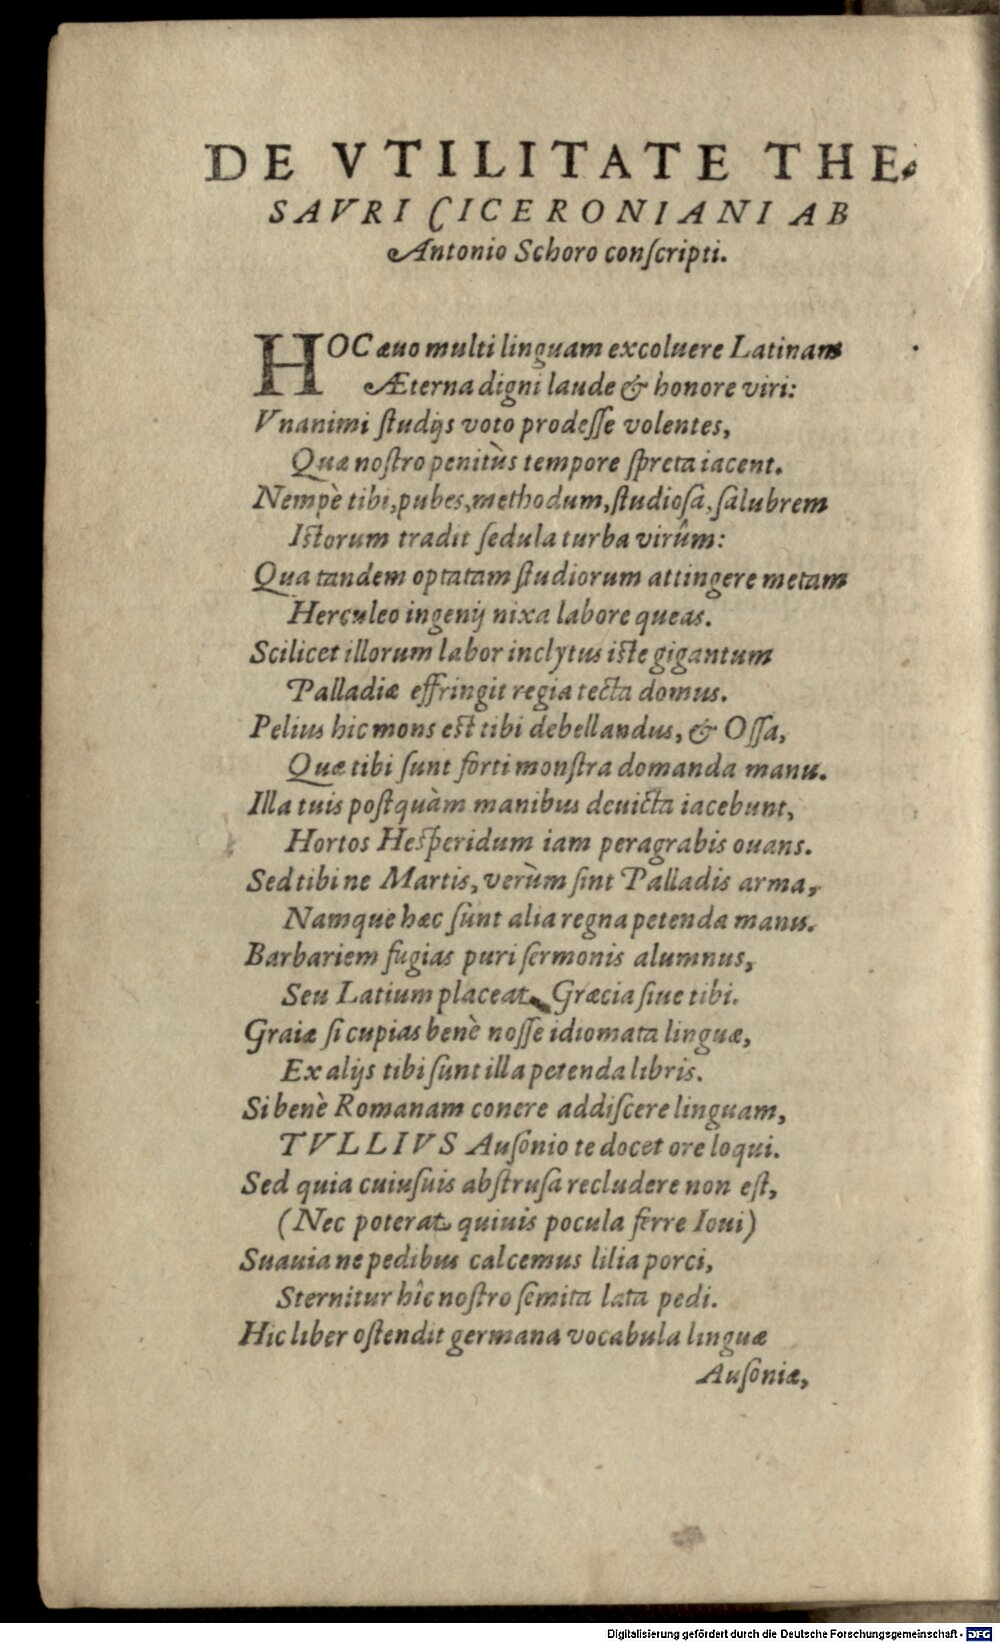 DE VTILITATE THE-
SAVRI CICERONIANI AB
Antonio Schoro conſcripti.
HOC æuo multi linguam excoluere Latinam
Æterna digni laude & honore viri:
Vnanimi ſtudijs voto prodeſſe volentes,
Quæ noſtro penitùs tempore ſpreta iacent.
Nempè tibi, pubes, methodum, ſtudioſa, ſalubrem
Istorum tradit ſedula turba virûm:
Qua tandem optatam ſtudiorum attingere metam
Herculeo ingenij nixa labore queas.
Scilicet illorum labor inclytus iste gigantum
Palladiæ effringit regia tecta domus.
Pelius hic mons est tibi debellandus, & Oſſa,
Quæ tibi ſunt forti monſtra domanda manu.
Illa tuis poſtquàm manibus deuicta iacebunt,
Hortos Heſperidum iam peragrabis ouans.
Sed tibi ne Martis, verùm ſint Palladis arma,
Namque hæc ſunt alia regna petenda manu.
Barbariem fugias puri ſermonis alumnus,
Seu Latium placeat, Græcia ſiue tibi.
Graiæ ſi cupias benè noſſe idiomata linguæ,
Ex alijs tibi ſunt illa petenda libris.
Si benè Romanam conere addiſcere linguam,
TVLLIVS Auſonio te docet ore loqui.
Sed quia cuiuſuis abſtruſa recludere non eſt,
(Nec poterat quiuis pocula ferre Ioui)
Suauia ne pedibus calcemus lilia porci,
Sternitur hîc noſtro ſemita lata pedi.
Hic liber oſtendit germana vocabula linguæ
Auſoniæ,
Digitalisierung gefördert durch die Deutsche Forschungsgemeinschaft - DFG